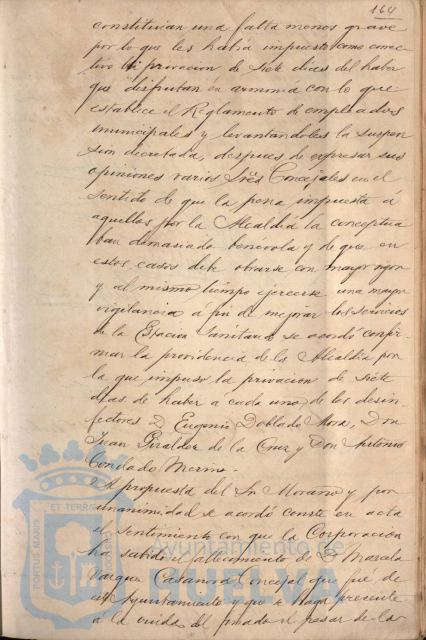 164
constituian una falta menos grave
por lo que les había impuesto como correc
tivo la privacion de siete dias del haber
que disfrutan en armonia con lo que
establece el Reglamento de empleados
municipales y levantandoles la suspen
sion decretada, despues de expresar sus
opiniones varios Sres Concejales en el
sentido de que la pena impuesta á
aquellos por la Alcaldia la conceptua
ban demasiado benevola y de que en
estos casos debe obrarse con mayor rigor
y al mismo tiempo ejercerse una mayor
vigilancia a fin de mejorar los servicios
de la Estacion Sanitaria se acordó confir
mar la providencia de la Alcaldia por
la que impuso la privacion de siete
dias de haber a cada uno de los desin
fectores D Eugenio Doblado Mora, Don
Juan Giraldez de la Cruz y Don Antonio
Condado Merino.
A propuesta del Sr Moraño y por
unanimidad se acordó conste en acta
el sentimiento con que la Corporacion
ha sabido el fallecimiento de D Marcelo
Vazquez Casanova Concejal que fué de
este Ayuntamiento y que se haga presente
a la viuda del finado el pesar de la
PORTUS MARIS ET TERRAE
Ayuntamiento de
HUELVA